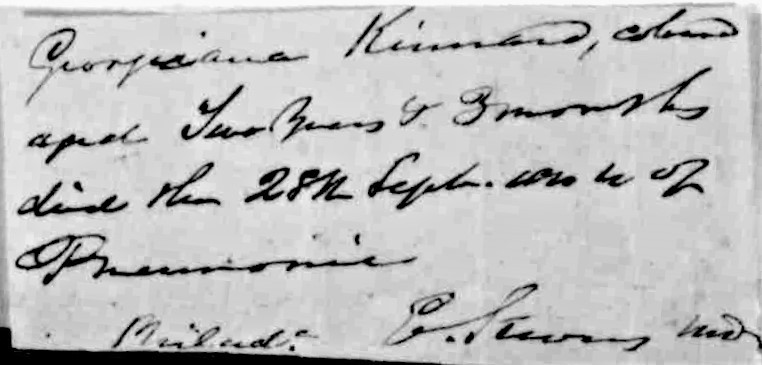 Georgiana Kinnard, colored
aged Two Years & 3 months
died the 28th Sept. of
Pneumonia
Philad. E. MD